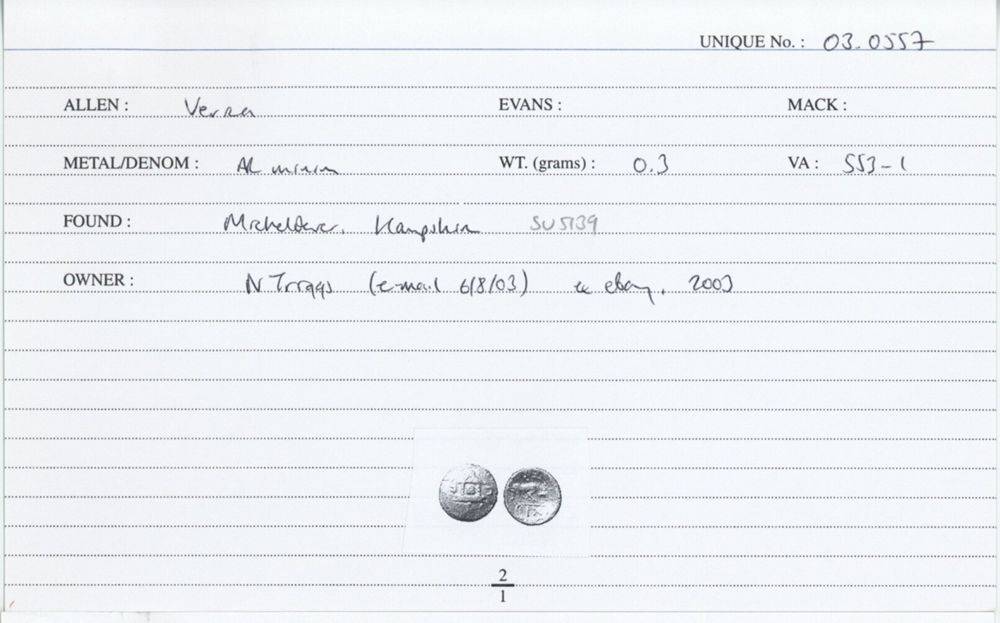 UNIQUE No. : 03.0557
ALLEN : Verica EVANS : MACK :
METAL/DENOM : AR minim WT. (grams) : 0.3 VA : 553-1
FOUND : Micheldever, Hampshire SU 5139
OWNER : N Triggs (e-mail 6/8/03) ex ebay, 2003
2
1